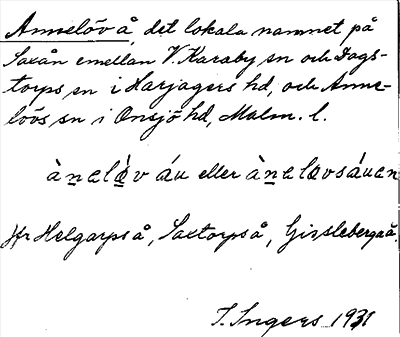 Annelöv å, det lokala namnet på
Saxån emellan V. Karaby sn och Dags-
torps sn i Harjagers hd, och Anne-
lövs sn i Onsjö hd, Malm. l.
ànelòv áu eller ànelovsáuen
Jfr Helgarps å, Saxtorps å, Gisslebergaå.
I. Ingers 1931